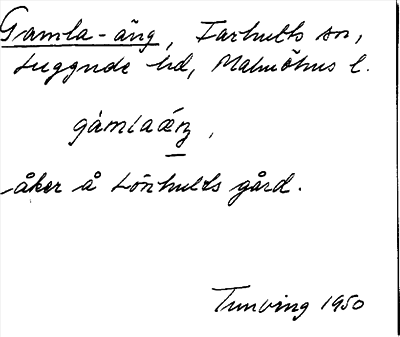 Gamla-äng, Farhults sn,
Luggude hd, Malmöhus l.
gàmlaǽŋ,
åker å Lönhults gård.
Tunving 1950